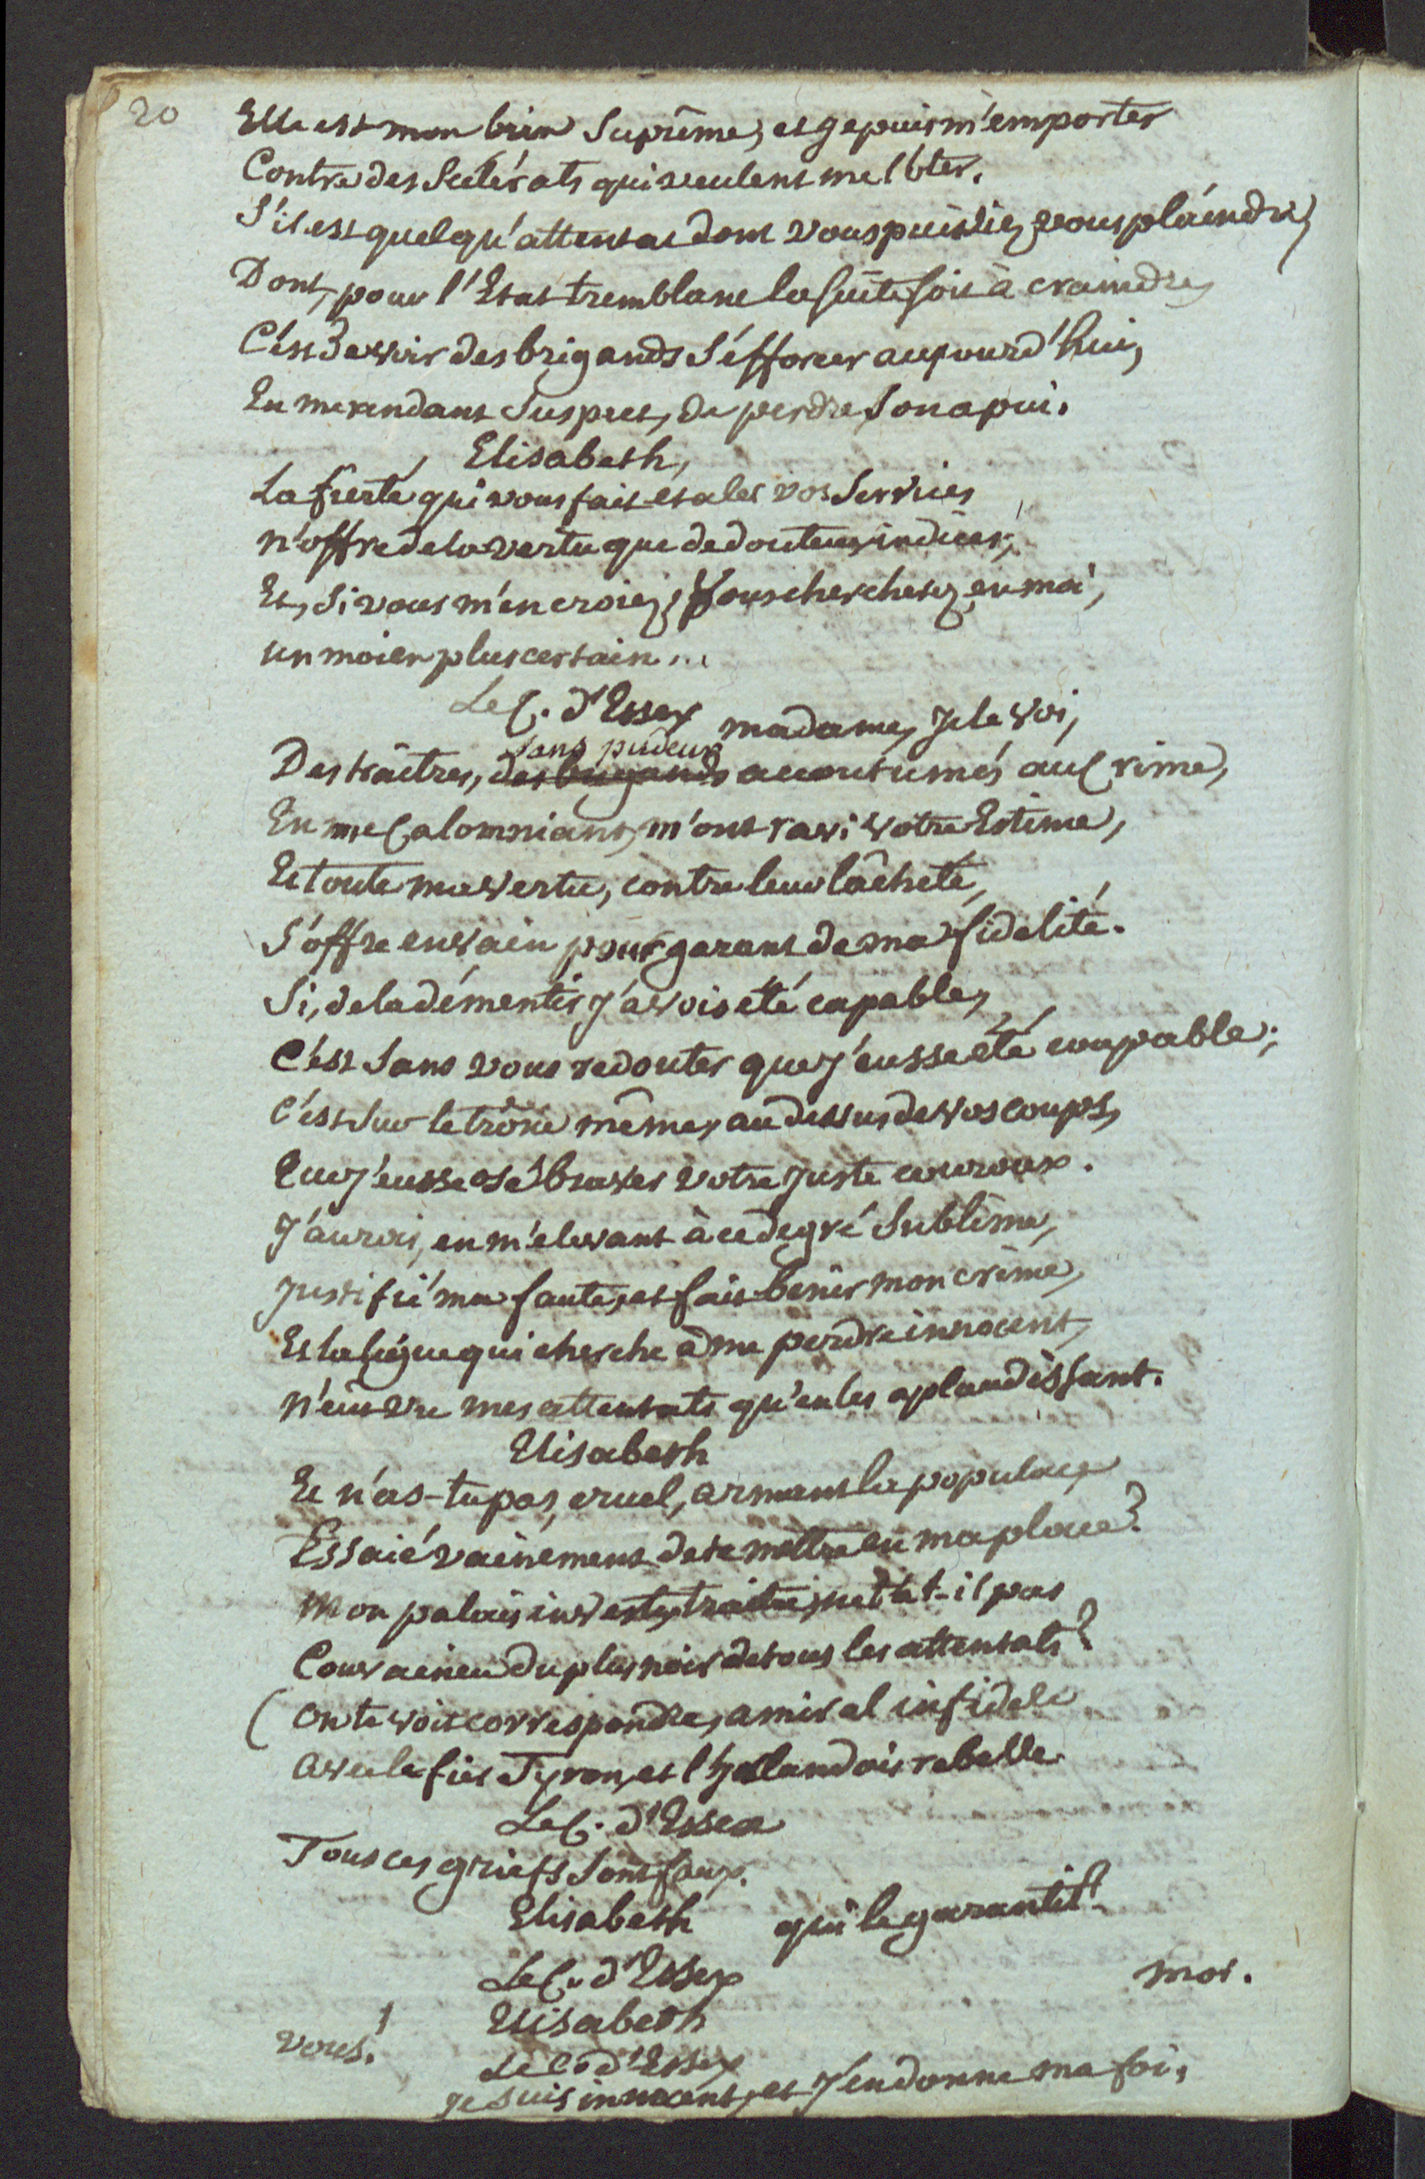 20
Elle est mon bien Suprême, et je puis m'emporter
Contre des Scélérats qui veulent me l'ôter.
S'il est quelqu'attentat dont vous puissiez vous plaindre,
Dont, pour l'Etat tremblant la suite soit à craindre,
C'est de voir des brigands s'éfforcer aujourd'hui,
En me rendant suspect, de perdre son apui.
Elisabeth,
La fierté qui vous fait étaler vos Services
n'offre de la vertu que de douteux indices;
Et, si vous m'en croiez, Vous chercherez, en moi,
un moien plus certain...
Le C. d'Essex
madame, Je le voi,
sans pudeur
Des traîtres, des brigands accoutumés au Crime,
En me Calomniant, m'ont ravi votre Estime,
Et toute ma vertu, contre leur lâcheté,
S'offre en vain pour garant de ma fidélité.
Si, de la démentir j'avois été capable,
C'est sans vous redouter que j'eusse été coupable;
c'est sur le trône même, au dessus de vos coups,
Que j'eusse osé braver votre juste couroux.
J'aurois, en m'élevant à ce degré Sublime,
Justifié ma faute, et fait bénir mon crime,
Et la ligue qui cherche à me perdre innocent,
N'eût vu mes attentats qu'en les aplaudissant.
Elisabeth
Et n'as-tu pas, cruel, armant la populace
Essaié vainement de te mettre en ma place?
Mon palais investi, traître, ne t'a t-il pas
Convaincu du plus noir de tous les attentats?
(On te voit correspondre, amiral infidele
avec le fier Tyron, et l'hollandois rebelle
Le C. d'Essex
Tous ces griefs sont faux.
Elisabeth
qui le garantit?
Le C. d'Essex
moi.
Elisabeth
Vous!
Le C. d'Essex
Je suis innocent, et j'en donne ma foi,